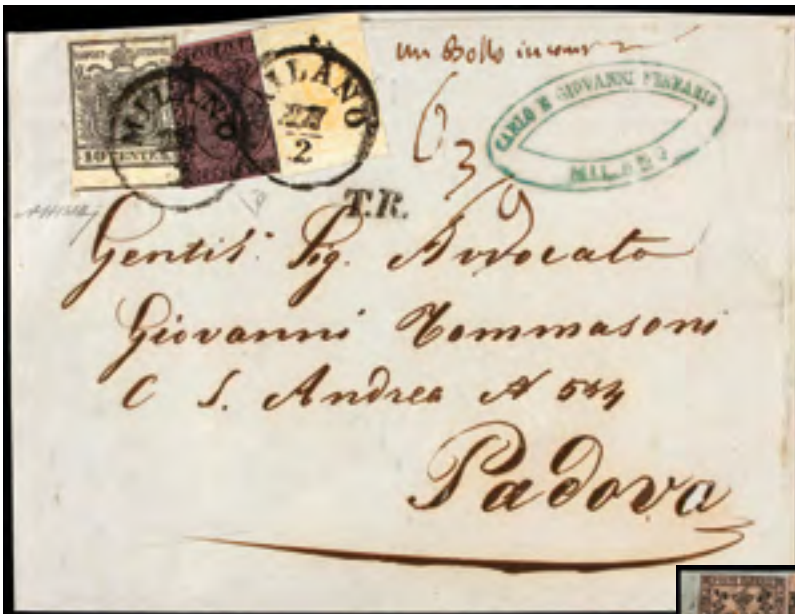 10 CENTES
MILANO
MILANO
2
un Bollo
63
T.R.
CARLO E GIOVANNI FERRARIO
MILANO
Gentil. Sig. Avvocato
Giovanni Tommasoni
C S. Andrea N 544
Padova